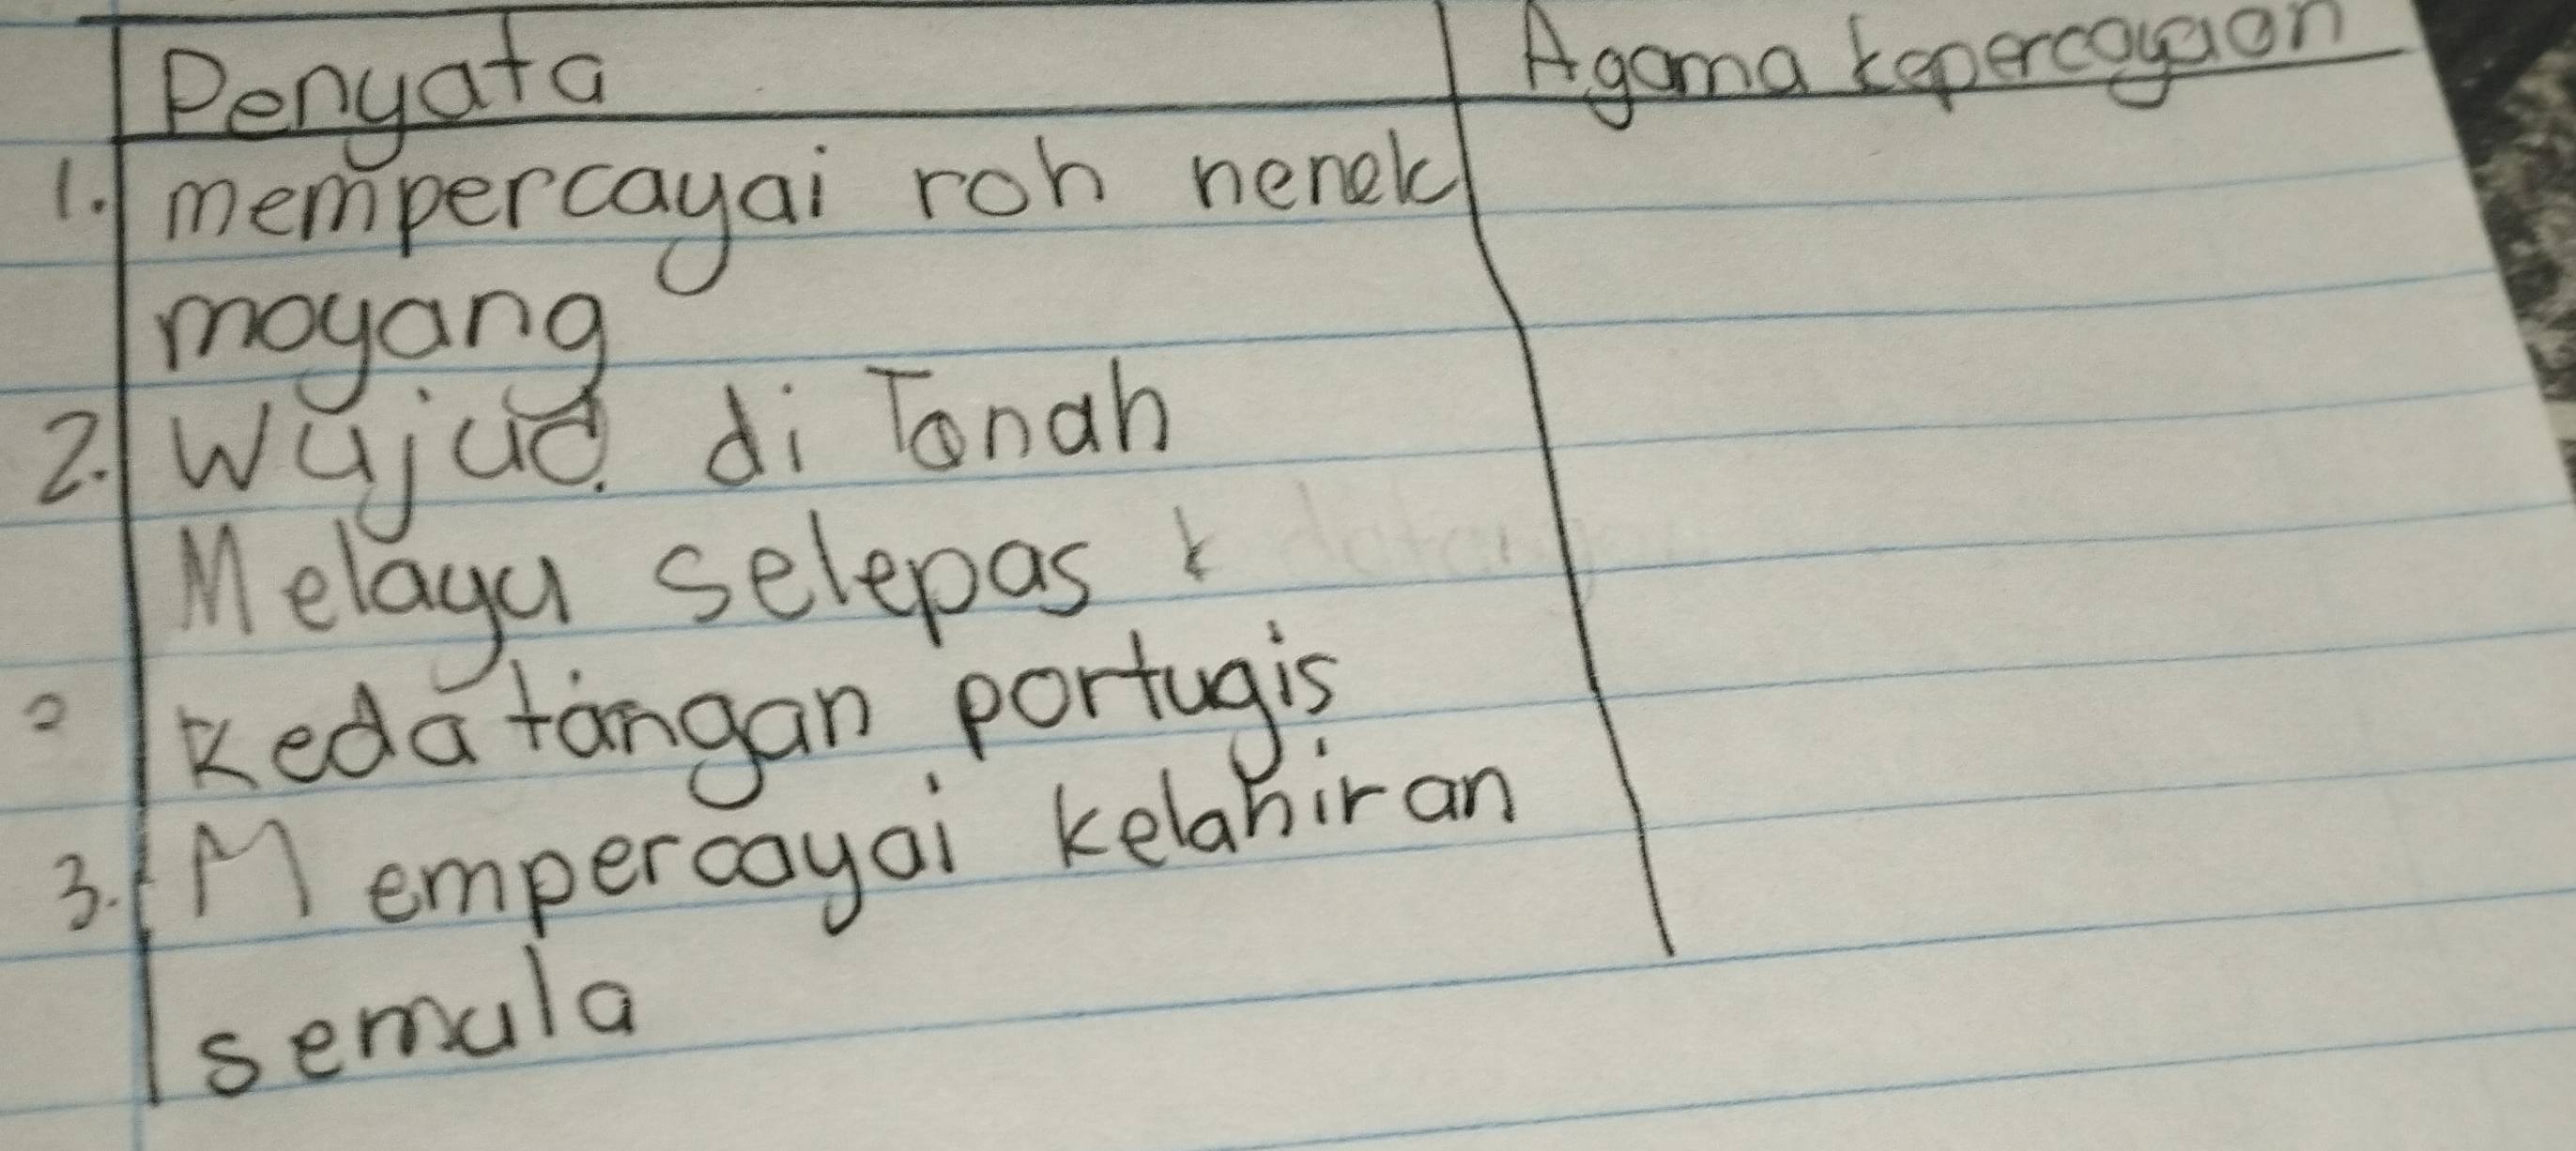 Penyata
Agama kepercayaan
1. mempercayai roh nenek
moyang
2. Wujud di Tanah
Melayu selepas k
Kedatangan portugis
3. Mempercayai kelahiran
semula